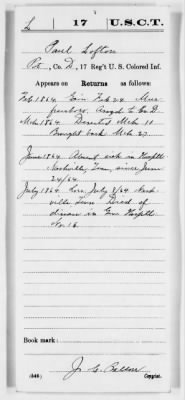 L | 17 | U.S.C.T.
Paul Lofton
Pvt, Co. D, 17 Reg't U. S. Colored Inf.
Appears on Returns as follows:
Feb 1864. Gain Feb 24. Mur
freesboro, Assgd to Co D.
Mch 1864 Deserted Mch 11
Brought back Mch 27.
June 1864 Absent sick in Hospital
Nashville, Tenn, since June
24/64.
July 1864. Loss July 8/64 Nash-
ville Tenn Died of
disease in Gen Hospital
No 16.
Book mark:
(546)
Copyist.